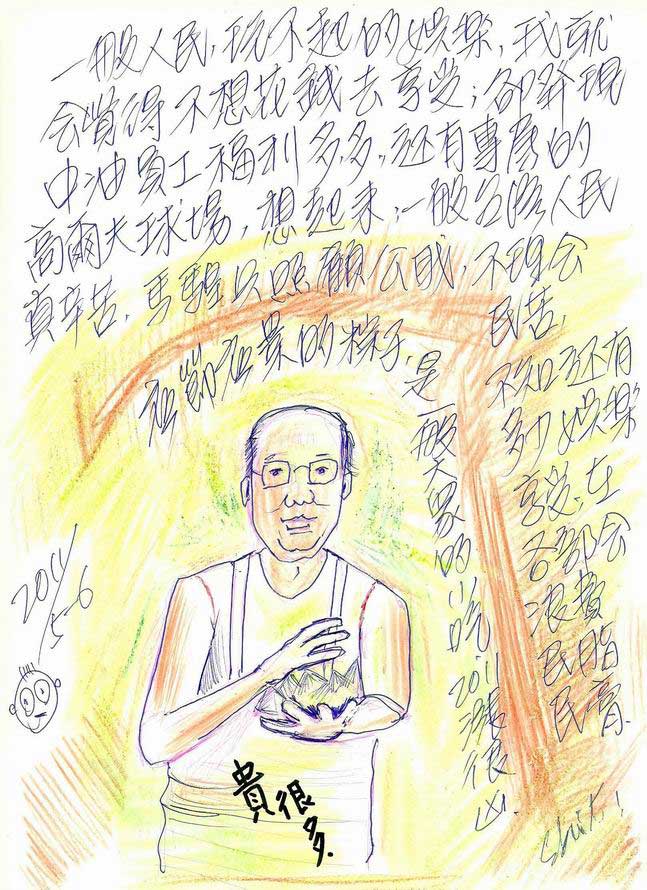 一般人民,玩不起的娛樂,我就
会覺得不想花錢去享受;卻發現
中油員工福利多多,还有專屬的
高爾夫球場,想起來,一般台灣人民
真辛苦.馬騜只照顧公職,不理会
民苦,
不知还有
多少娛樂
享受.在
各部会
浪費
民脂
民膏.
Shit!
应節应景的粽子,
是一般大眾的小吃2011漲很凶.
貴很多.
2011/5-6